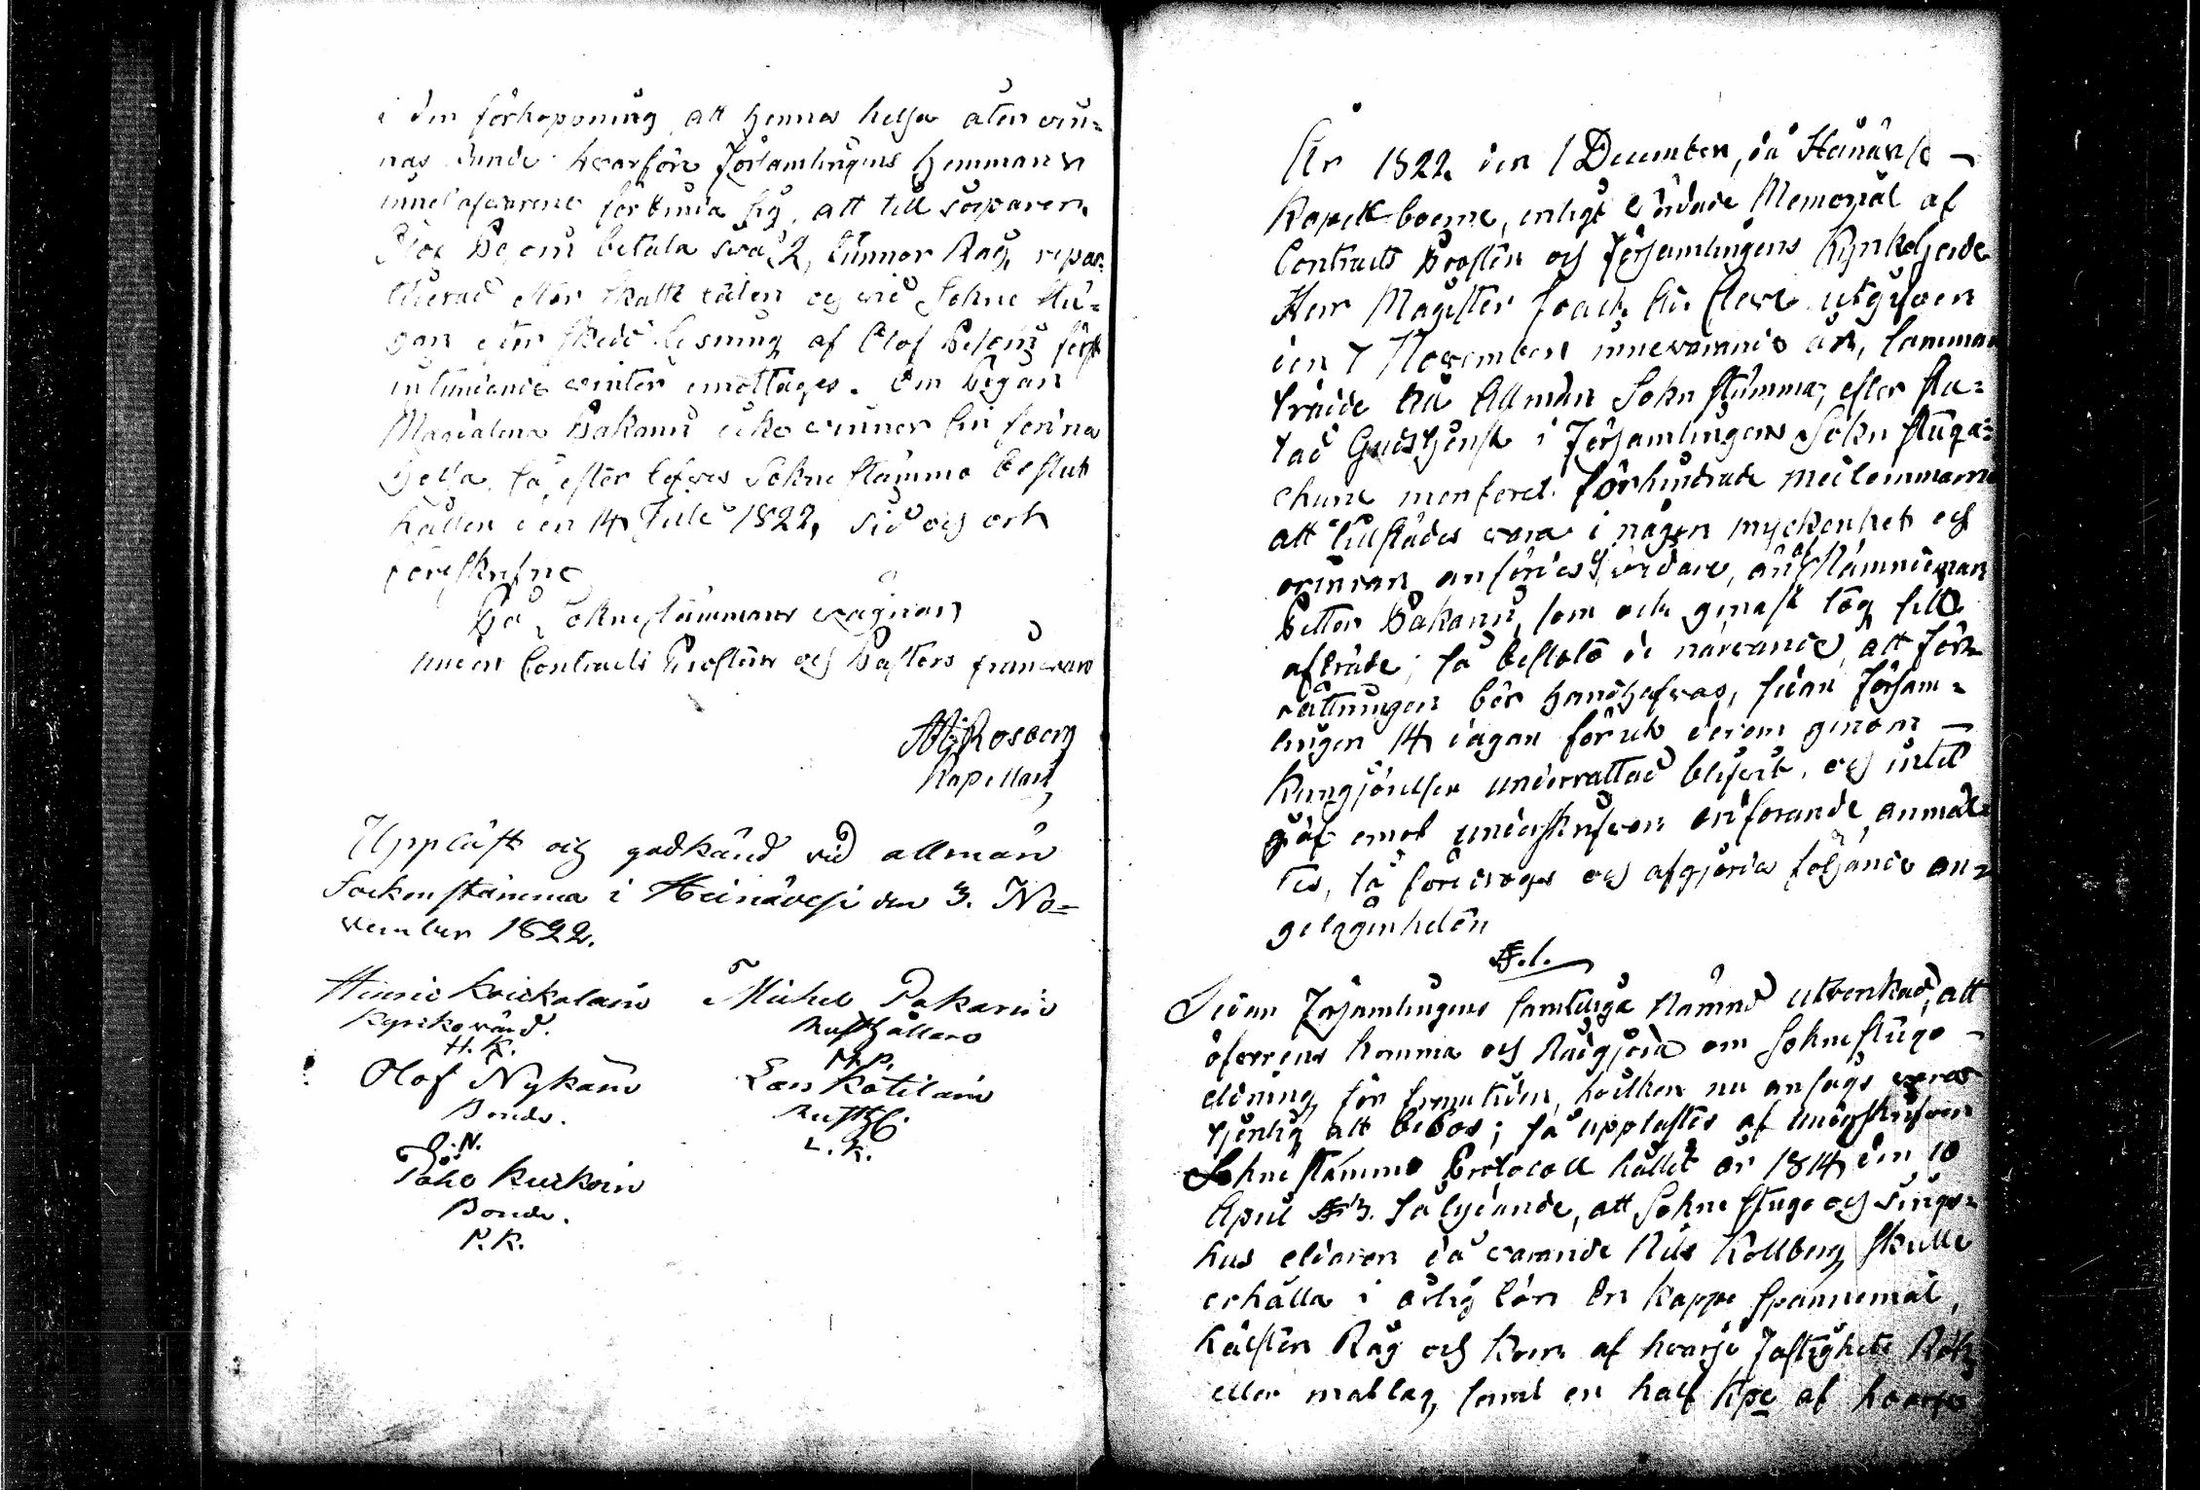 i den förhoppning att hennes helsa åter vin=
nas kunde hvarföre Församlingens Hemmans
innehafvarene förbinda sig, att till
betala två, 2, tunnor Råg, repar=
tilerad efter skatt talen och vid Sokne stu=
gan efter skedd lysning af Olof först
instundande vinter emottages. Om Pigan
Magdalena Pakarin icke vinner sin förra
helsa, så efter Sokne stämmo beslut
hållen den 14 Julii 1822, tid och ort
föreskrefne
På Soknestämmans vägnar
under Contracts Prostens och Pastors frånvaro
Rosberg
Kapellan
Uppläst och godkänd vid allmän
Sockenstämma i Heinävesi den 3. No=
vember 1822.
Henric Kåickalain Michel Pakarin
Kyrkovärd. Rusthållare
H. K. M. P.
Olof Nykäin Lars Kotilain
Bonde. Rusth.
O. N. L. K.
Påho Kurkoin
Bonde.
P. K.
År 1822 den 1 December, då Heinävesi
Kapell boerne, enligt Memorial af
Contracts Prosten och Församlingens Kyrkoherde
Herr Magister utgifven
den 7 November innevarande år, samman
trädde till Allmän Sokn stämma, efter slu=
tad Gudstjenst i Församlingens Sokn stuga;
men föret förhindrade medlemmarne
att tillstädes vara i någon myckenhet och
ärinran anfördes af nämndeman
Petter Pakarin, som ock genast tog till
afträde; så beslöto de närvarande, att för=
rättningen bör handhafvas, sedan Försam=
lingen 14 dagar förut derom genom
Kungjörelse underrättad blifvit, och intet
jäf emot underskrifven ordförande anmäl=
tes, så föredrogs och afgjordes följande an=
gelägenheter
§.1.
Sedan Församlingens samtliga Nämnd utverkad, att
öfverens komma och Rådgjöra om Sokne stugo
eldning för framtiden, hvilken nu ansågs vara
tjenlig att bebos; så upplästes af underskrifven
Sokne stämmo Protocoll hållet år 1814 den 10
April § 3. så lydande, att Sokne Stugo och tings=
hus eldaren då varande Nils Kollberg skulle
erhålla i årlig lön en kappe spannemål,
hälften Råg och Korn af hvarje Fastighets Rök
eller matlag, samt en half kpe af hvarje